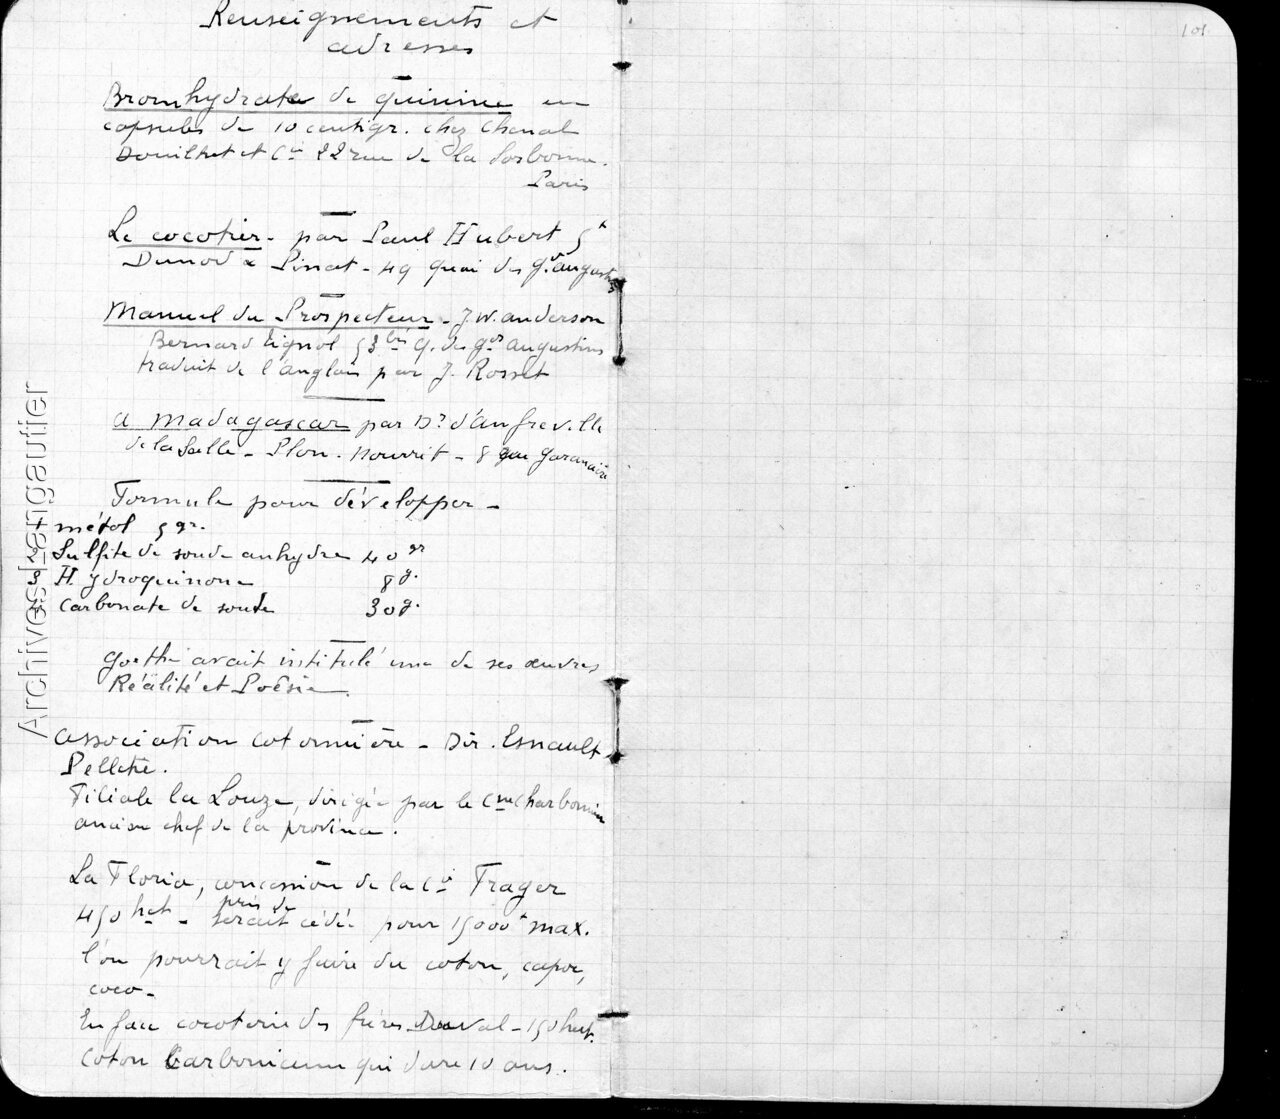 Renseignements et
adresses
Bromhydrate de quinine en
capsules de 10 centigr. chez Chenal
Douilhet et Cie 22 rue de la Sorbonne.
Paris
Le cocotier - par Paul Hubert 5f
Dunod & Pinat - 49 quai des gds august
Manuel du Prospecteur - J. W. anderson
Bernard Tignol 53 bis q. des gds augustins
traduit de l'anglais par J. Rosset
a madagascar par Dr d'Anfreville
de la Salle - Plon. nourrit - 8 rue garancière
Formule pour développer -
1 métol 5 gr.
2 Sulfite de soude anhydre 40 gr
3 Hydroquinone 8 g.
4 carbonate de soude 30 g.
goethe avait institulé une de ses œuvres
Réalité et Poésie.
association cotonnière - Dir. Esnault
Pelterie.
Filiale la Louze, dirigée par le Cne Charbonnier
ancien chef de la province.
La Floria, concession de la Cie Frager
450 hect - près de
serait cédée pour 15000f max.
l'on pourrait y faire du coton, capoc,
coco -
En face cocoterie des frères Duval - 150 hect.
Coton Carbonicum qui dure 10 ans.
101
Archives Langautier